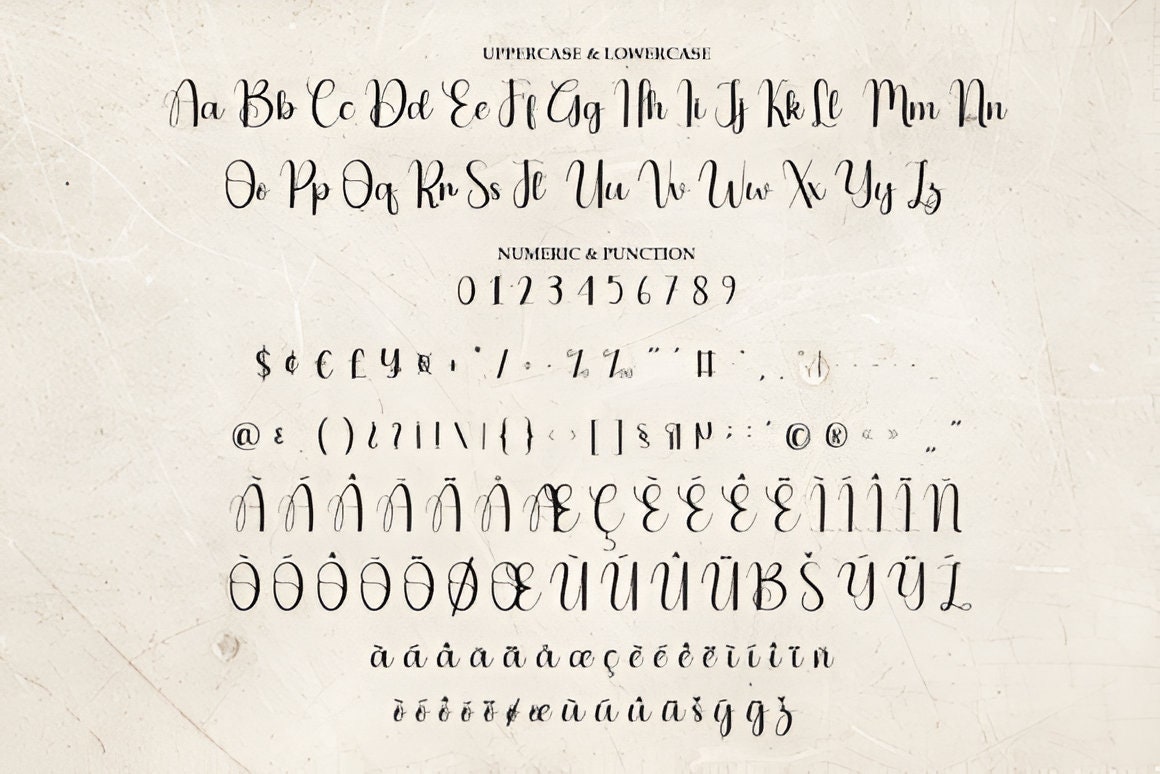 UPPERCASE & LOWERCASE
Aa Bb Cc Dd Ee Ff Gg Hh Ii Jj Kk Ll Mm Nn
Oo Pp Qq Rr Ss Tt Uu Vv Ww Xx Yy Zz
NUMERIC & PUNCTION
0 1 2 3 4 5 6 7 8 9
$ ¢ € £ ¥ ¤ / % ‰ " ' #
@ & ( ) ¿ ? ¡ ! \ | { } ‹ › [ ] § ¶ µ ; : ' © ® « » „ "
À Á Â Ã Ä Å Æ Ç È É Ê Ë Ì Í Î Ï Ñ
Ò Ó Ô Õ Ö Ø Œ Ù Ú Û Ü Š Ý Ÿ
à á â ã ä å æ ç è é ê ë ì í î ï ñ
ò ó ô õ ö ø œ ù ú û š ý